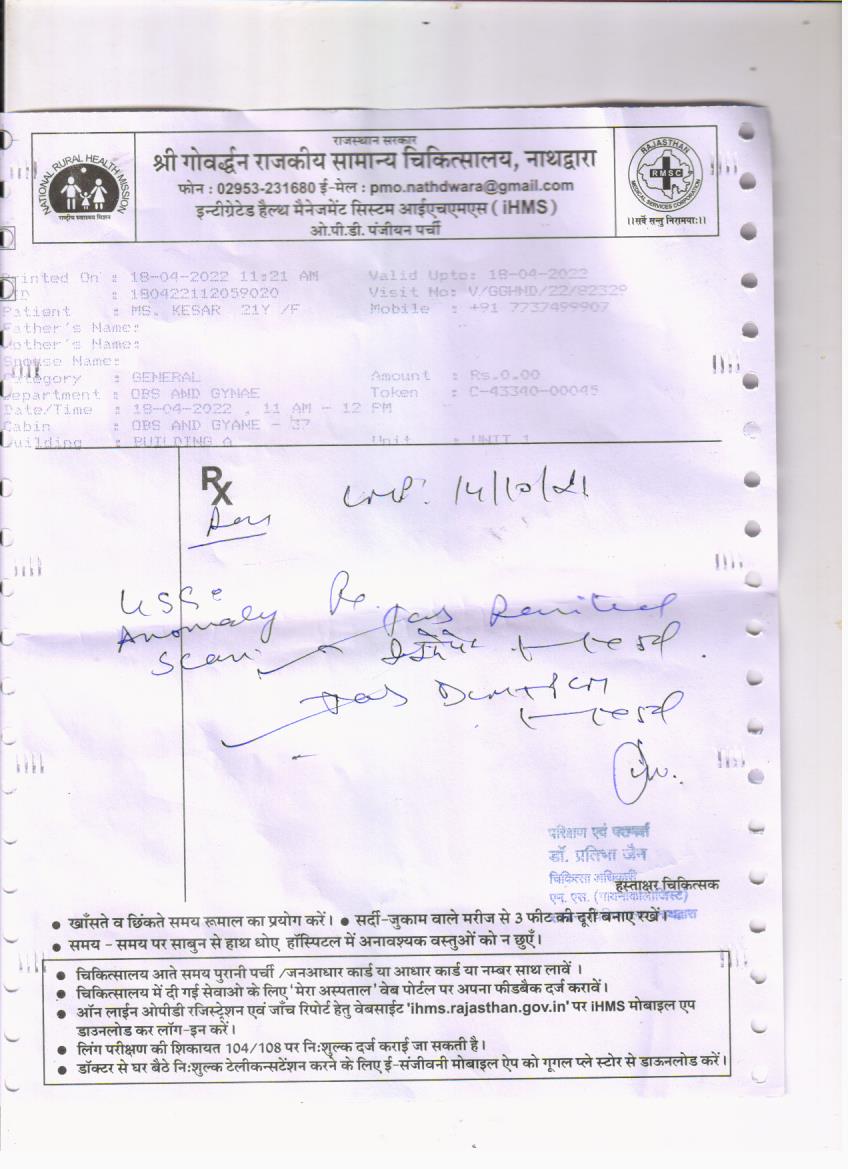 राजस्थान सरकार
श्री गोवर्द्धन राजकीय सामान्य चिकित्सालय, नाथद्वारा
फोन : 02953-231680 ई-मेल : pmo.nathdwara@gmail.com
इन्टीग्रेटेड हैल्थ मैनेजमेंट सिस्टम आईएचएमएस ( iHMS )
ओ.पी.डी. पंजीयन पर्ची
NATIONAL RURAL HEALTH MISSION
राष्ट्रीय स्वास्थ्य मिशन
RAJASTHAN
RMSC
MEDICAL SERVICES CORPORATION
।।सर्वे सन्तु निरामयाः।।
Printed On : 18-04-2022 11:21 AM Valid Upto: 18-04-2022
: 180422112059020 Visit No: V/GGHND/22/82329
Patient : MS. KESAR 21Y /F Mobile : +91 7737499907
Father's Name:
Mother's Name:
Spouse Name:
Category : GENERAL Amount : Rs.0.00
Department : OBS AND GYNAE Token : C-43340-00045
Date/Time : 18-04-2022 , 11 AM - 12 PM
Cabin : OBS AND GYANE - 37
Building : BUILDING A Unit : UNIT 1
Rx
LMP. 14/10/21
USG:
Anomaly
Scan
परिक्षण एवं परामर्श
डॉ. प्रतिभा जैन
चिकित्सा अधिकारी
हस्ताक्षर चिकित्सक
एम. एस. (गायनोकोलोजिस्ट)
● खाँसते व छिंकते समय रूमाल का प्रयोग करें। ● सर्दी-जुकाम वाले मरीज से 3 फीट की दूरी बनाए रखें।
● समय - समय पर साबुन से हाथ धोए हॉस्पिटल में अनावश्यक वस्तुओं को न छुएँ।
● चिकित्सालय आते समय पुरानी पर्ची /जनआधार कार्ड या आधार कार्ड या नम्बर साथ लावें ।
● चिकित्सालय में दी गई सेवाओ के लिए 'मेरा अस्पताल' वेब पोर्टल पर अपना फीडबैक दर्ज करावें।
● ऑन लाईन ओपीडी रजिस्ट्रेशन एवं जाँच रिपोर्ट हेतु वेबसाईट 'ihms.rajasthan.gov.in' पर iHMS मोबाइल एप
डाउनलोड कर लॉग-इन करें।
● लिंग परीक्षण की शिकायत 104/108 पर निःशुल्क दर्ज कराई जा सकती है।
● डॉक्टर से घर बैठे निःशुल्क टेलीकन्सटेंशन करने के लिए ई-संजीवनी मोबाइल ऐप को गूगल प्ले स्टोर से डाऊनलोड करें।